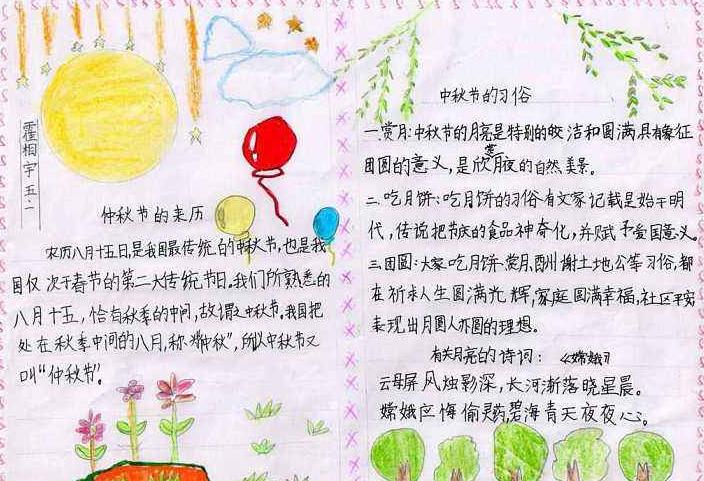 霍相宇五·一
仲秋节的来历
农历八月十五日是我国最传统的中秋节,也是我
国仅次于春节的第二大传统节日。我们所熟悉的
八月十五,恰有秋季的中间,故谓之中秋节。我国把
处在秋季中间的八月,称"仲秋",所以中秋节又
叫"仲秋节"。
中秋节的习俗
一.赏月:中秋节的月亮是特别的皎洁和圆满具有象征
团圆的意义,是欣赏月夜的自然美景。
二.吃月饼:吃月饼的习俗有文家记载是始于明
代,传说把节庆的食品神奇化,并赋予爱国意义。
三.团圆:大家吃月饼.赏月.酬谢土地公等习俗,都
在祈求人生圆满光辉,家庭圆满幸福,社区平安
表现出月圆人亦圆的理想。
有关月亮的诗词:《嫦娥》
云母屏风烛影深,长河渐落晓星晨。
嫦娥应悔偷灵药,碧海青天夜夜心。